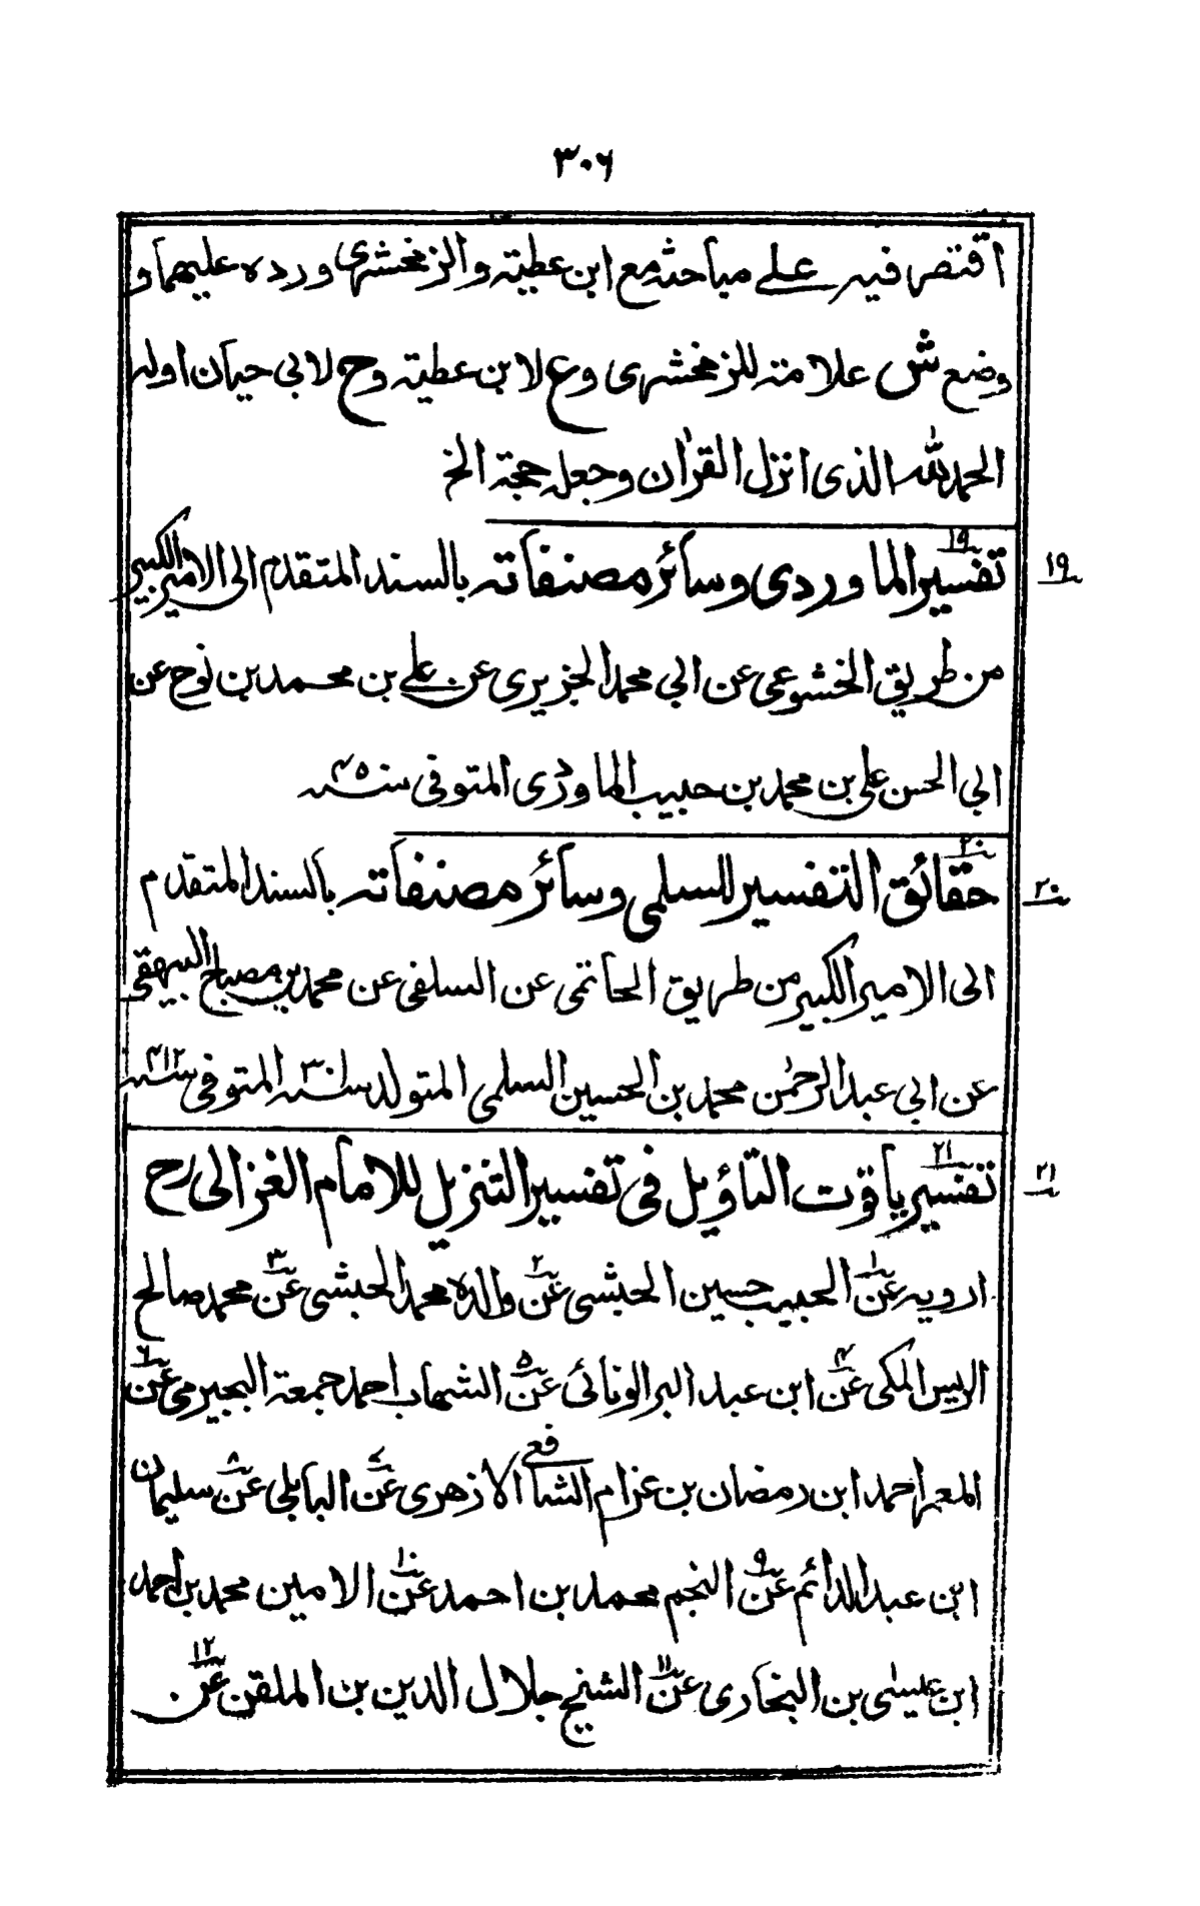 ٣٠٦
اقتصر فيه على مباحثه مع ابن عطية والزمخشرى ورده عليهما و
وضع ش علامة للزمخشرى وع لابن عطية وح لابي حيان اوله
الحمد لله الذى انزل القرآن وجعله حجة الخ
١٩ تفسير الماوردى وسائر مصنفاته بالسند المتقدم الى الامير الكبير ١٩
من طريق الخشوعى عن ابي محمد الجزيرى عن على بن محمد بن نوح عن
ابي الحسن على بن محمد بن حبيب الماوردى المتوفى سنه
٢٠ حقائق التفسير للسلمى وسائر مصنفاته بالسند المتقدم ٢٠
الى الامير الكبير من طريق الحاتمى عن السلفى عن محمد بن مصباح البيهقى
عن ابي عبد الرحمن محمد بن الحسين السلمى المتولد سنه المتوفى سنه ٤١٢
٢١ تفسير ياقوت التاويل فى تفسير التنزيل للامام الغزالى رح ٢١
ارويه عن١ الحبيب حسين الحبشى عن٢ والده محمد الحبشى عن٣ محمد صالح
الريس المكى عن٤ ابن عبد البر الونائى عن٥ الشهاب احمد جمعة البجيرمى عن٦
المعمر احمد ابن رمضان بن عزام الشافعى الازهرى عن٧ البابلى عن٨ سليمان
ابن عبد الدائم عن٩ النجم محمد بن احمد عن١٠ الامين محمد بن احمد
ابن عيسى بن البخارى عن١١ الشيخ جلال الدين بن الملقن عن١٢